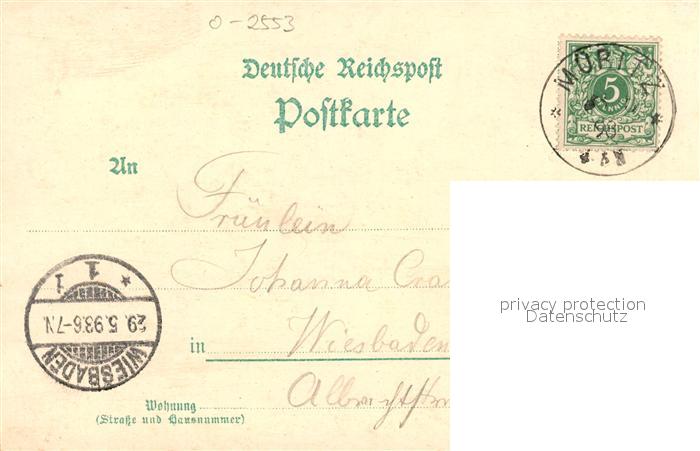 0-2553
Deutsche Reichspost
Postkarte
MORITZ
5
PFENNIG
REICHSPOST
An
Fräulein
Johanna Cra
privacy protection
Datenschutz
in Wiesbaden
Albrechtstr
Wohnung
(Straße und Hausnummer)
1
29. 5. 98. 6-7N.
WIESBADEN